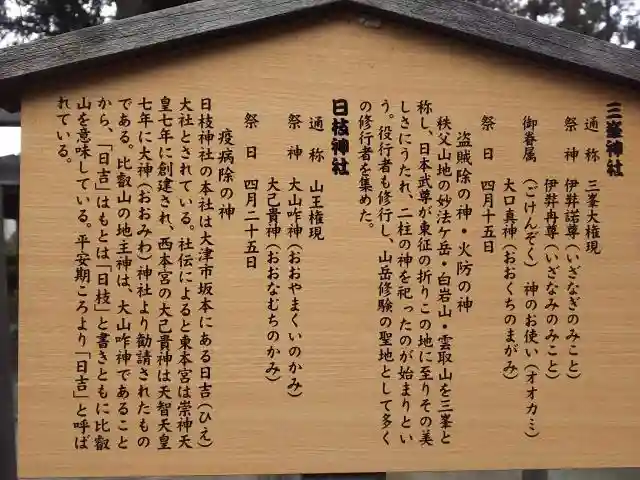 三峯神社
通称 三峯大権現
祭神 伊弉諾尊(いざなぎのみこと)
伊弉冉尊(いざなみのみこと)
御眷属(ごけんぞく) 神のお使い(オオカミ)
大口真神(おおくちのまがみ)
祭日 四月十五日
盗賊除の神・火防の神
秩父山地の妙法ケ岳・白岩山・雲取山を三峯と
称し、日本武尊が東征の折りこの地に至りその美
しさにうたれ、二柱の神を祀ったのが始まりとい
う。役行者も修行し、山岳修験の聖地として多く
の修行者を集めた。
日枝神社
通称 山王権現
祭神 大山咋神(おおやまくいのかみ)
大己貴神(おおなむちのかみ)
祭日 四月二十五日
疫病除の神
日枝神社の本社は大津市坂本にある日吉(ひえ)
大社とされている。社伝によると東本宮は崇神天
皇七年に創建され、西本宮の大己貴神は天智天皇
七年に大神(おおみわ)神社より勧請されたもの
である。比叡山の地主神は、大山咋神であること
から、「日吉」はもとは「日枝」と書きともに比叡
山を意味している。平安期ころより「日吉」と呼ば
れている。